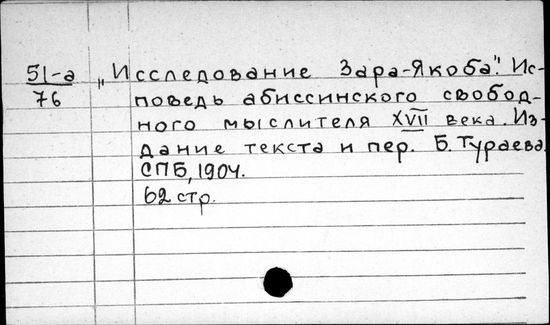 51-а „Исследование Зара-Якоба". Ис-
76 поведь абиссинского свобод-
ного мыслителя XVII века. Из-
дание текста и пер. Б. Тураева.
СПБ, 1904.
62 стр.